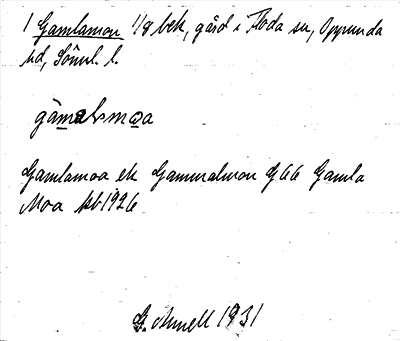 1 Gamlamon 1/8 bek, gård i Floda sn, Oppunda
hd, Söml. l.
gàmalmωa
Gamlamoa ek Gammalmon G66 Gamla
Moa kb 1926
G. Arnell 1931